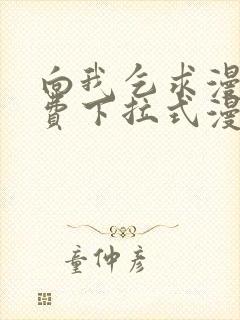 向我乞求漫
費下拉式漫
童仲彦